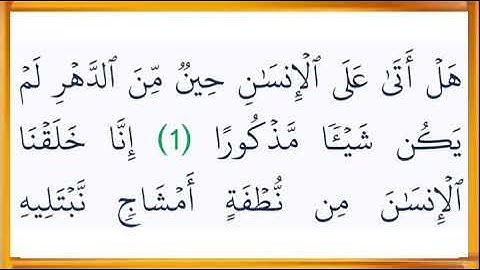 هَلۡ أَتَىٰ عَلَى ٱلۡإِنسَٰنِ حِينٞ مِّنَ ٱلدَّهۡرِ لَمۡ
يَكُن شَيۡـٔٗا مَّذۡكُورًا (1) إِنَّا خَلَقۡنَا
ٱلۡإِنسَٰنَ مِن نُّطۡفَةٍ أَمۡشَاجٖ نَّبۡتَلِيهِ